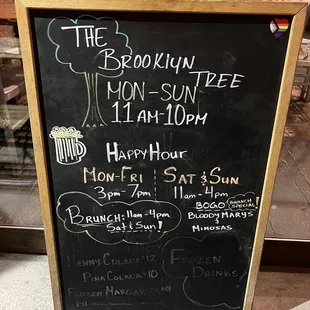 THE
BROOKLYN
TREE
MON-SUN
11AM-10PM
HAPPY HOUR
MON-FRI
3PM-7PM
SAT & SUN
11AM-4PM
BOGO BRUNCH SPECIAL
BLOODY MARYS
&
MIMOSAS
BRUNCH: 11AM-4PM
SAT & SUN!
HENNY COLADA $12
PINA COLADA $10
FROZEN
FROZEN
DRINKS!